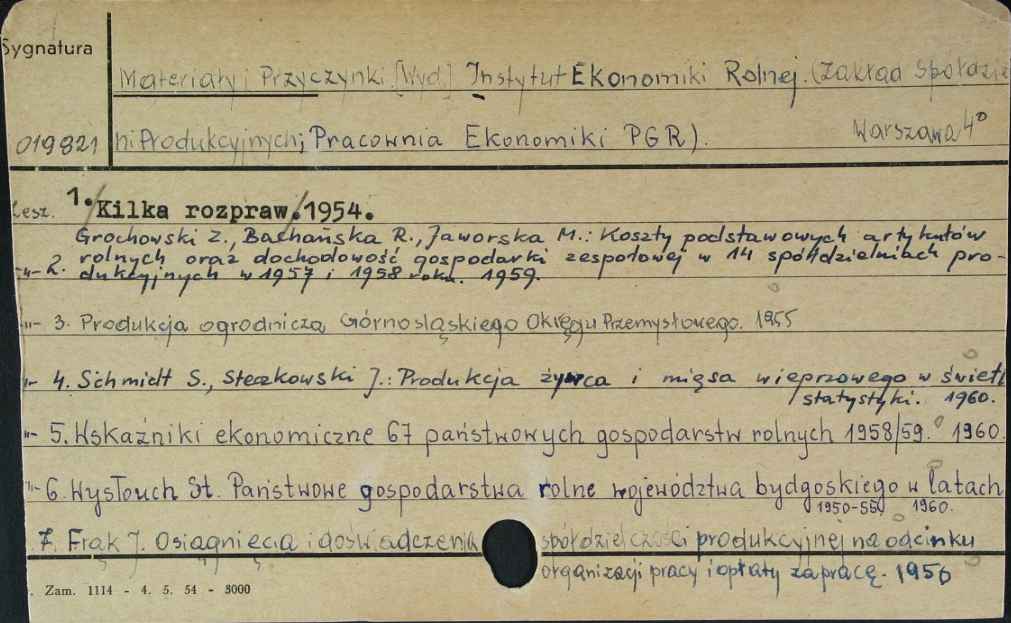 Sygnatura
Materiały i Przyczynki. [Wyd.] Instytut Ekonomiki Rolnej. (Zakład Spółdziel
019821 ni Produkcyjnych; Pracownia Ekonomiki PGR). Warszawa 4°
zesz. 1. Kilka rozpraw. 1954.
Grochowski Z., Bachańska R., Jaworska M.: Koszty podstawowych artykułów
-"- 2. rolnych oraz dochodowość gospodarki zespołowej w 14 spółdzielniach pro-
dukcyjnych w 1957 i 1958 roku. 1959.
-"- 3. Produkcja ogrodnicza Górnosląskiego Okręgu Przemysłowego. 1955
-"- 4. Schmidt S., Steczkowski J.: Produkcja żywca i mięsa wieprzowego w świetl
statystyki. 1960.
-"- 5. Wskaźniki ekonomiczne 67 państwowych gospodarstw rolnych 1958/59. 1960.
-"- 6. Wysłouch St. Państwowe gospodarstwa rolne województwa bydgoskiego w latach
1950-55. 1960.
7. Frąk J. Osiągnięcia i doświadczenia spółdzielczości produkcyjnej na odcinku
organizacji pracy i opłaty za pracę. 1956
. Zam. 1114 - 4. 5. 54 - 3000